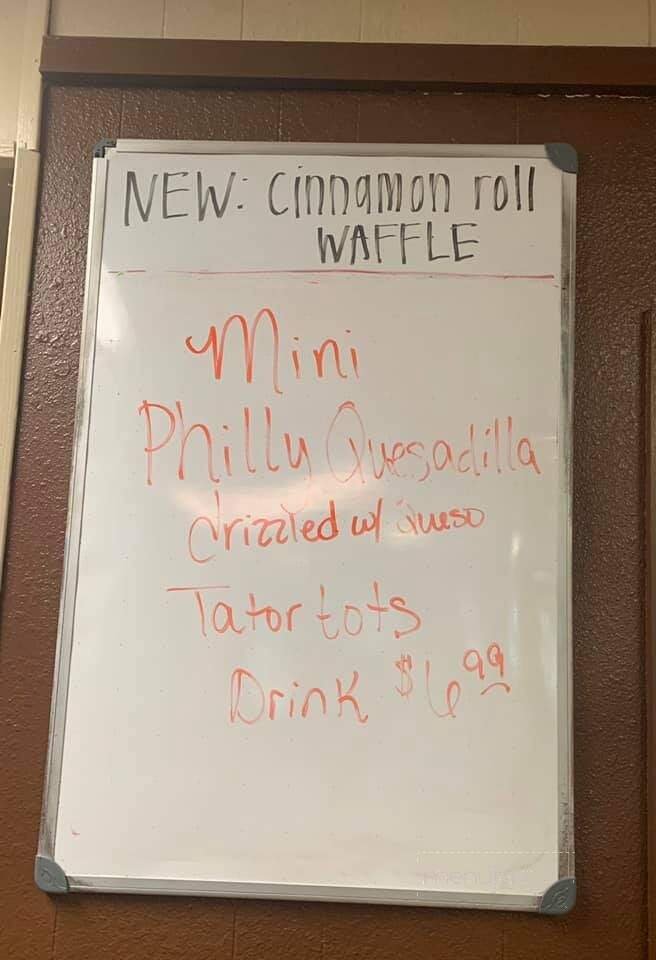 NEW: Cinnamon roll
WAFFLE
Mini
Philly Quesadilla
drizzled w/ queso
Tator tots
Drink $6.99